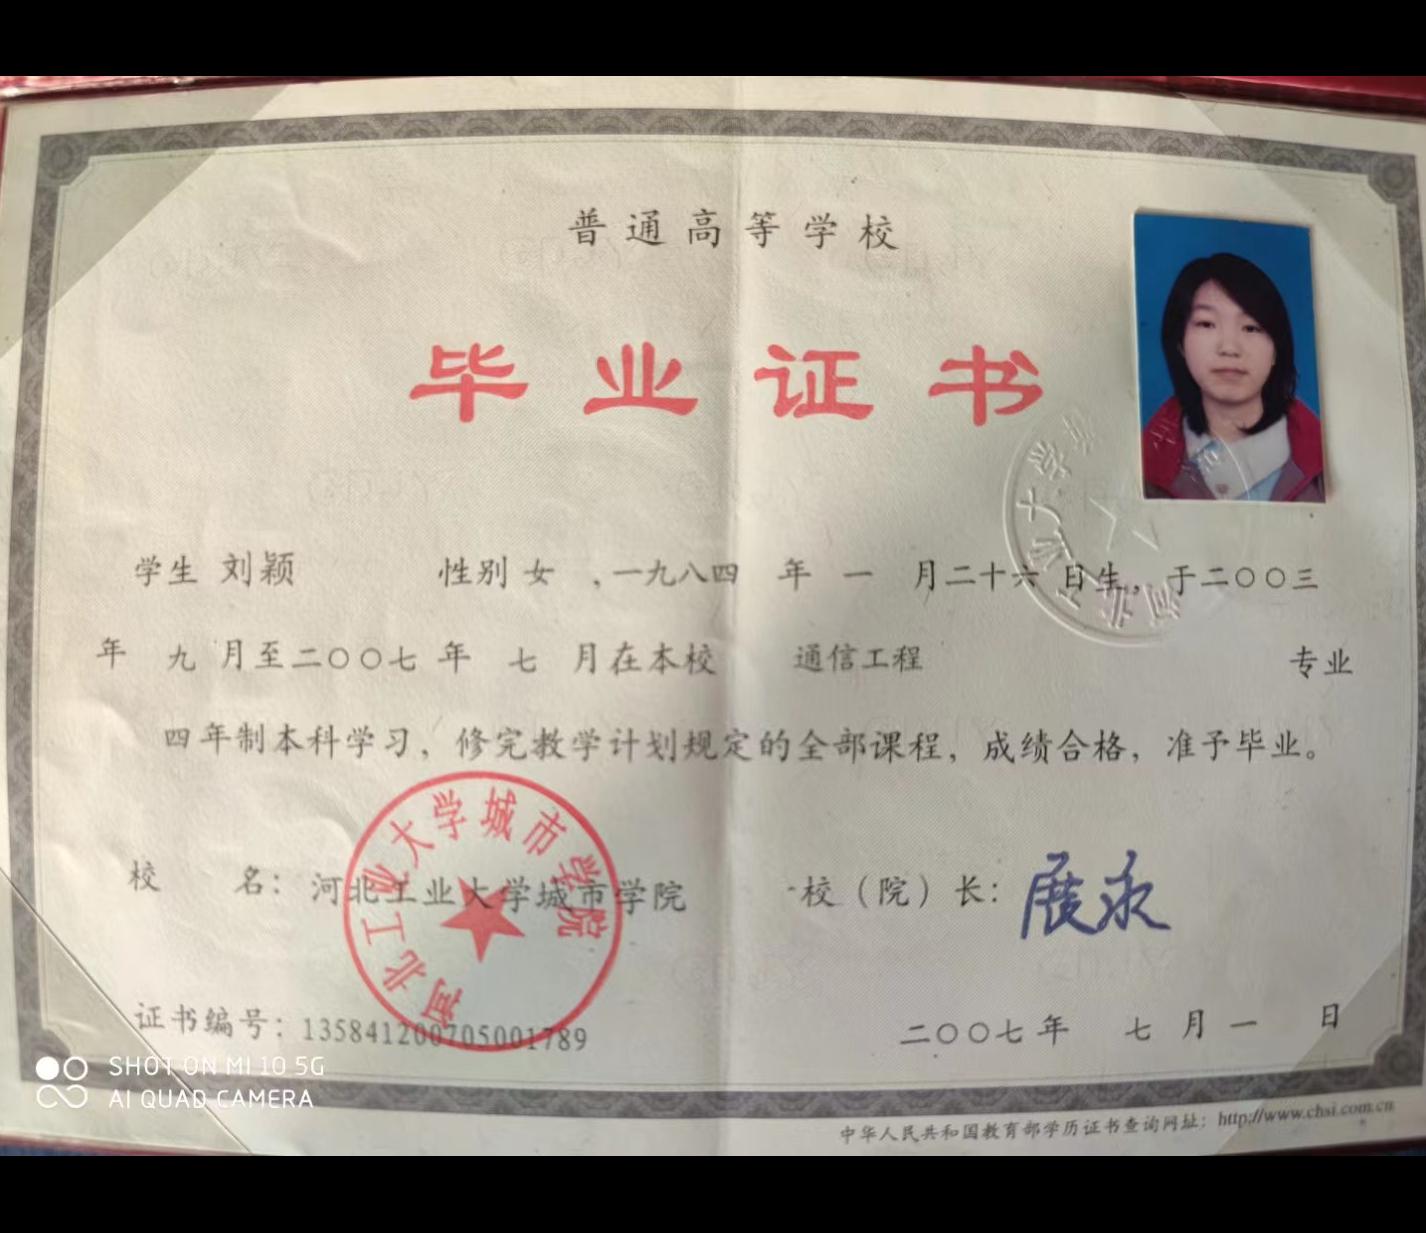 普通高等学校
毕业证书
学生 刘颖 性别 女 ,一九八四 年 一 月二十六 日生,于二〇〇三
年 九 月至二〇〇七 年 七 月在本校 通信工程 专业
四年制本科学习，修完教学计划规定的全部课程，成绩合格，准予毕业。
河北工业大学城市学院
校 名：河北工业大学城市学院 校（院）长：
证书编号：135841200705001789 二〇〇七 年 七 月 一 日
SHOT ON MI 10 5G
AI QUAD CAMERA
中华人民共和国教育部学历证书查询网址：http://www.chsi.com.cn